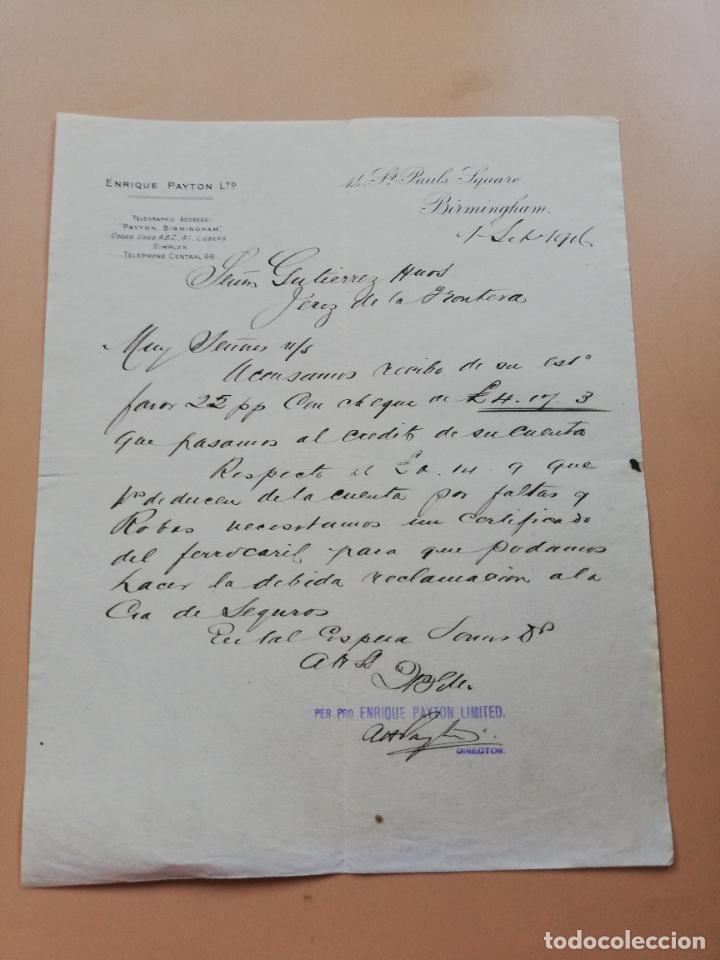 ENRIQUE PAYTON LTD
TELEGRAPHIC ADDRESS:
"PAYTON, BIRMINGHAM,"
CODES USED A.B.C. A1. LIEBERS
SIMPLEX
TELEPHONE CENTRAL 66
St Pauls Square,
Birmingham,
1916
Gutierrez Hnos
Jerez de la Frontera
Muy Señores n/s
Acusamos recibo de su est°
favor 25 pp Con cheque de £4. 17. 3
que pasamos al credito de su cuenta
Respecto el 14. 9 que
deducen de la cuenta por faltas y
Robos necesitamos un certificado
del ferrocaril para que podamos
hacer la debida reclamacion a la
Cia de Seguros
En tal Espera Somos
PER PRO ENRIQUE PAYTON LIMITED.
DIRECTOR.
todocoleccion